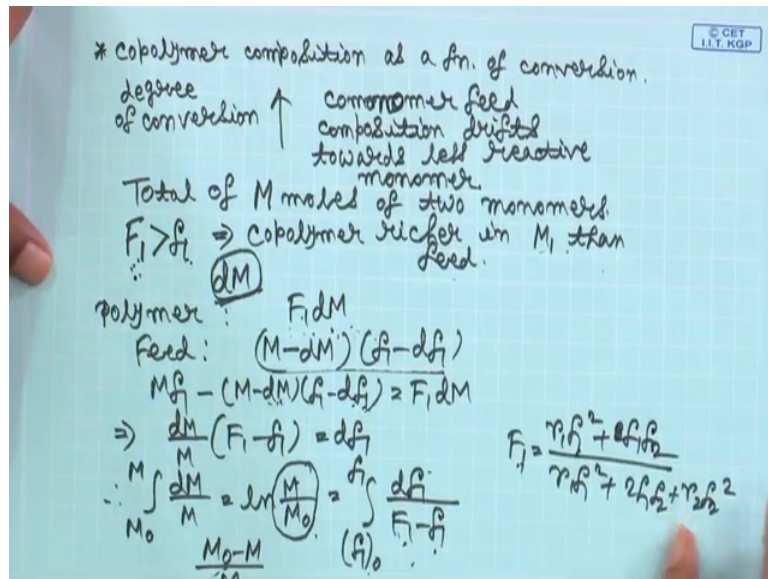 © CET
I.I.T. KGP
* Copolymer composition as a fn. of conversion.
degree of conversion ↑ comonomer feed
composition drifts
towards less reactive
monomer.
Total of M moles of two monomers.
F₁>f₁ ⇒ copolymer richer in M₁ than
feed.
dM
polymer : F₁dM
Feed: (M-dM)(f₁-df₁)
Mf₁ - (M-dM)(f₁-df₁) = F₁dM
⇒ dM/M (F₁-f₁) = df₁
∴ ∫_{M₀}^{M} dM/M = ln(M/M₀) = ∫_{(f₁)₀}^{f₁} df₁/(F₁-f₁)
F₁ = (r₁f₁² + f₁f₂)/(r₁f₁² + 2f₁f₂ + r₂f₂²)
M₀-M